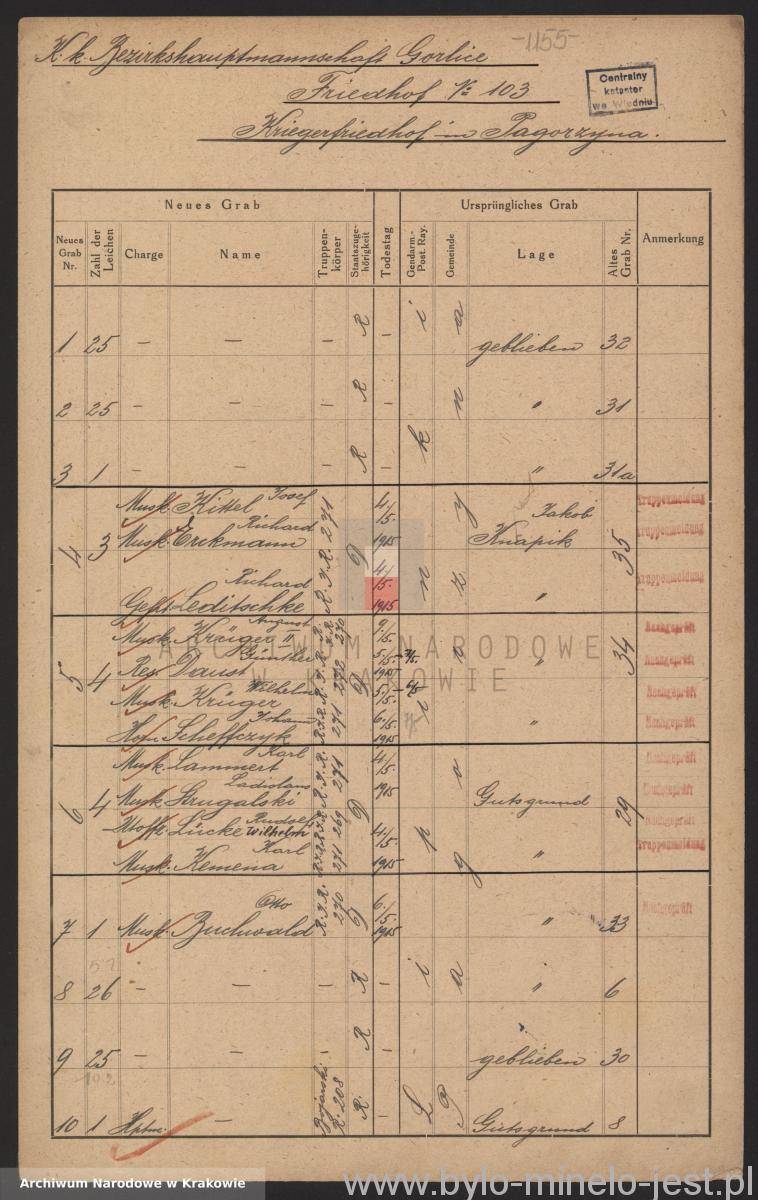 -1155-
K. k. Bezirkshauptmannschaft Gorlice
Friedhof No 103
Kriegerfriedhof in Pagorzyna.
Centralny
kataster
we Wiedniu
Neues Grab Ursprüngliches Grab
Neues Grab Nr. Zahl der Leichen Charge Name Truppen-körper Staatszuge-hörigkeit Todestag Gendarm.-Post. Ray. Gemeinde Lage Altes Grab Nr. Anmerkung
1 25 — — — R — geblieben 32
2 25 — — — R — " 31
3 1 — — — R — " 31a
4 3 Musk. Kittel Josef R. I. R. 271 D 4./5. 1915 Jakob Knapik 35 Truppenmeldung
Musk. Erkmann Richard Truppenmeldung
Gefr. Leditschke Richard 4./5. 1915 " Truppenmeldung
5 4 Musk. Krüger II August R. I. R. 270 D 9./5. " 34 Nachgeprüft
Res. Daust Günther R. I. R. 272 5./5. 1915 Nachgeprüft
Musk. Krüger Wilhelm 5./5. Nachgeprüft
Scheffczyk Johann R. I. R. 271 6./5. 1915 " Nachgeprüft
6 4 Musk. Lammert Karl R. I. R. 271 D 4./5. 1915 Gutsgrund 29 Nachgeprüft
Musk. Strugalski Ladislaus Nachgeprüft
Utoffz. Lücke Rudolf Wilhelm R. I. R. 269 4./5. 1915 Nachgeprüft
Musk. Kemena Karl R. I. R. 271 " Truppenmeldung
7 1 Musk. Buchwald Otto R. I. R. 270 D 6./5. 1915 " 33 Nachgeprüft
8 26 — — — R — " 6
9 25 — — — R — geblieben 30
10 1 Hptm. — R. 208 R. — Gutsgrund 8
Lipinki
Pagorzyna
ARCHIWUM NARODOWE
W KRAKOWIE
Archiwum Narodowe w Krakowie
www.bylo-minelo-jest.pl